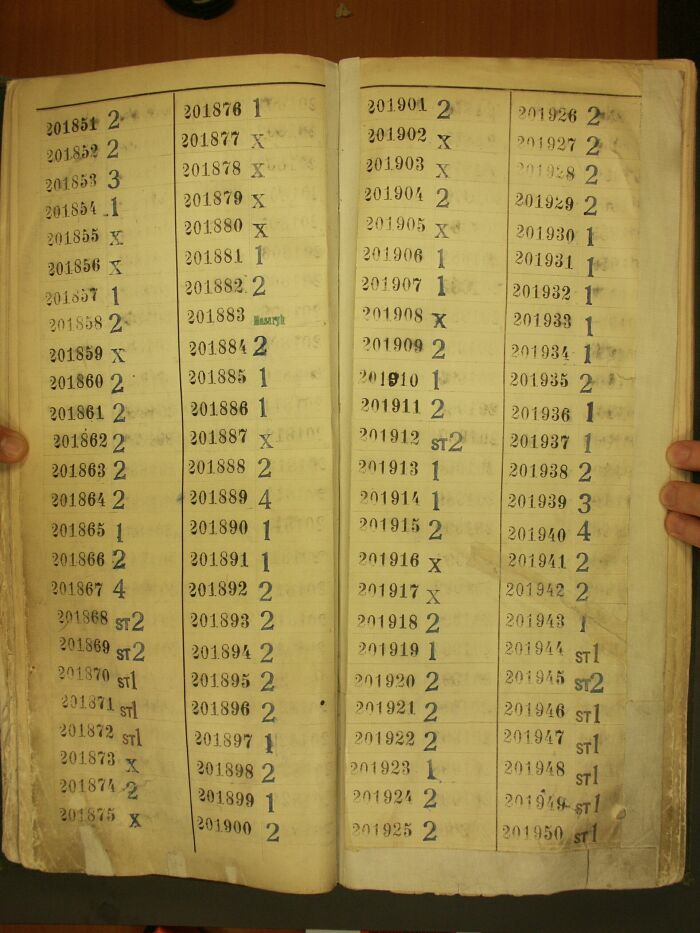 201851 2
201852 2
201853 3
201854 1
201855 X
201856 X
201857 1
201858 2
201859 X
201860 2
201861 2
201862 2
201863 2
201864 2
201865 1
201866 2
201867 4
201868 ST2
201869 ST2
201870 ST1
201871 ST1
201872 ST1
201873 X
201874 2
201875 X
201876 1
201877 X
201878 X
201879 X
201880 X
201881 1
201882 2
201883 Masaryk
201884 2
201885 1
201886 1
201887 X
201888 2
201889 4
201890 1
201891 1
201892 2
201893 2
201894 2
201895 2
201896 2
201897 1
201898 2
201899 1
201900 2
201901 2
201902 X
201903 X
201904 2
201905 X
201906 1
201907 1
201908 X
201909 2
201910 1
201911 2
201912 ST2
201913 1
201914 1
201915 2
201916 X
201917 X
201918 2
201919 1
201920 2
201921 2
201922 2
201923 1
201924 2
201925 2
201926 2
201927 2
201928 2
201929 2
201930 1
201931 1
201932 1
201933 1
201934 1
201935 2
201936 1
201937 1
201938 2
201939 3
201940 4
201941 2
201942 2
201943 1
201944 ST1
201945 ST2
201946 ST1
201947 ST1
201948 ST1
201949 ST1
201950 ST1